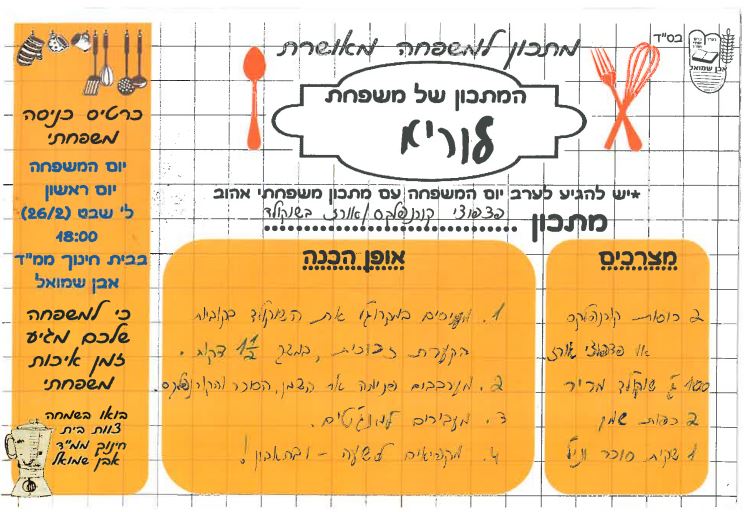 בס"ד
אבן שמואל
מתכון למשפחה מאושרת
המתכון של משפחת
לוריא
*יש להגיע לערב יום המשפחה עם מתכון משפחתי אהוב
מתכון פצפוצי קורנפלקס/אורז בשוקולד
מצרכים
2 כוסות קורנפלקס
או פצפוצי אורז
100 ג' שוקולד מריר
2 כפות שמן
1 שקית סוכר וניל
אופן הכנה
1. ממיסים במיקרוגל את השוקולד בקוביות
בקערת זכוכית, במשך 1 1/2 דקות.
2. מערבבים פנימה את השמן, הסוכר והקורנפלקס.
3. מעבירים למנג'טים.
4. מקפיאים לשעה - ובתאבון!
כרטיס כניסה
משפחתי
יום המשפחה
יום ראשון
ל' שבט (26/2)
18:00
בבית חינוך ממ"ד
אבן שמואל
כי למשפחה
שלכם מגיע
זמן איכות
משפחתי
בואו בשמחה
צוות בית
חינוך ממ"ד
אבן שמואל